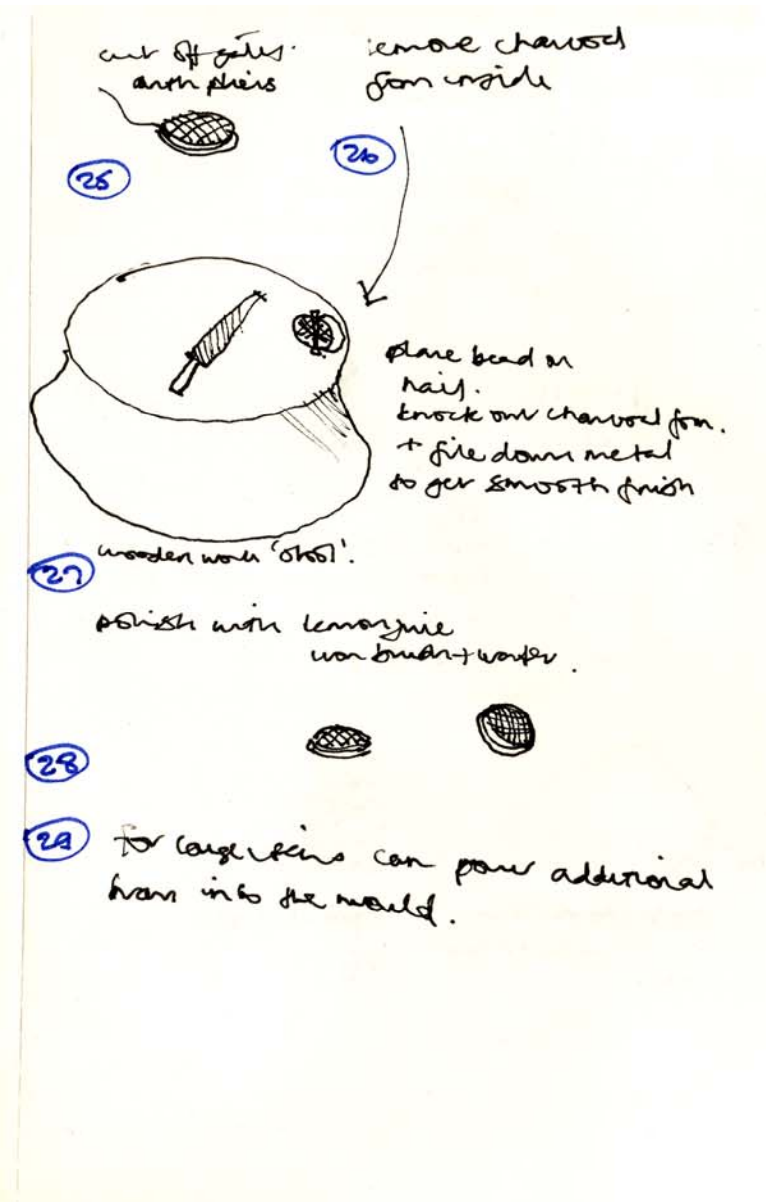 cut off gates.
with pliers
25
remove charcoal
from inside
26
place bead on
nail.
knock out charcoal from.
+ file down metal
to get smooth finish
wooden work 'stool'.
27
polish with lemon juice
iron brush + water.
28
29 for large items can pour additional
brass into the mould.